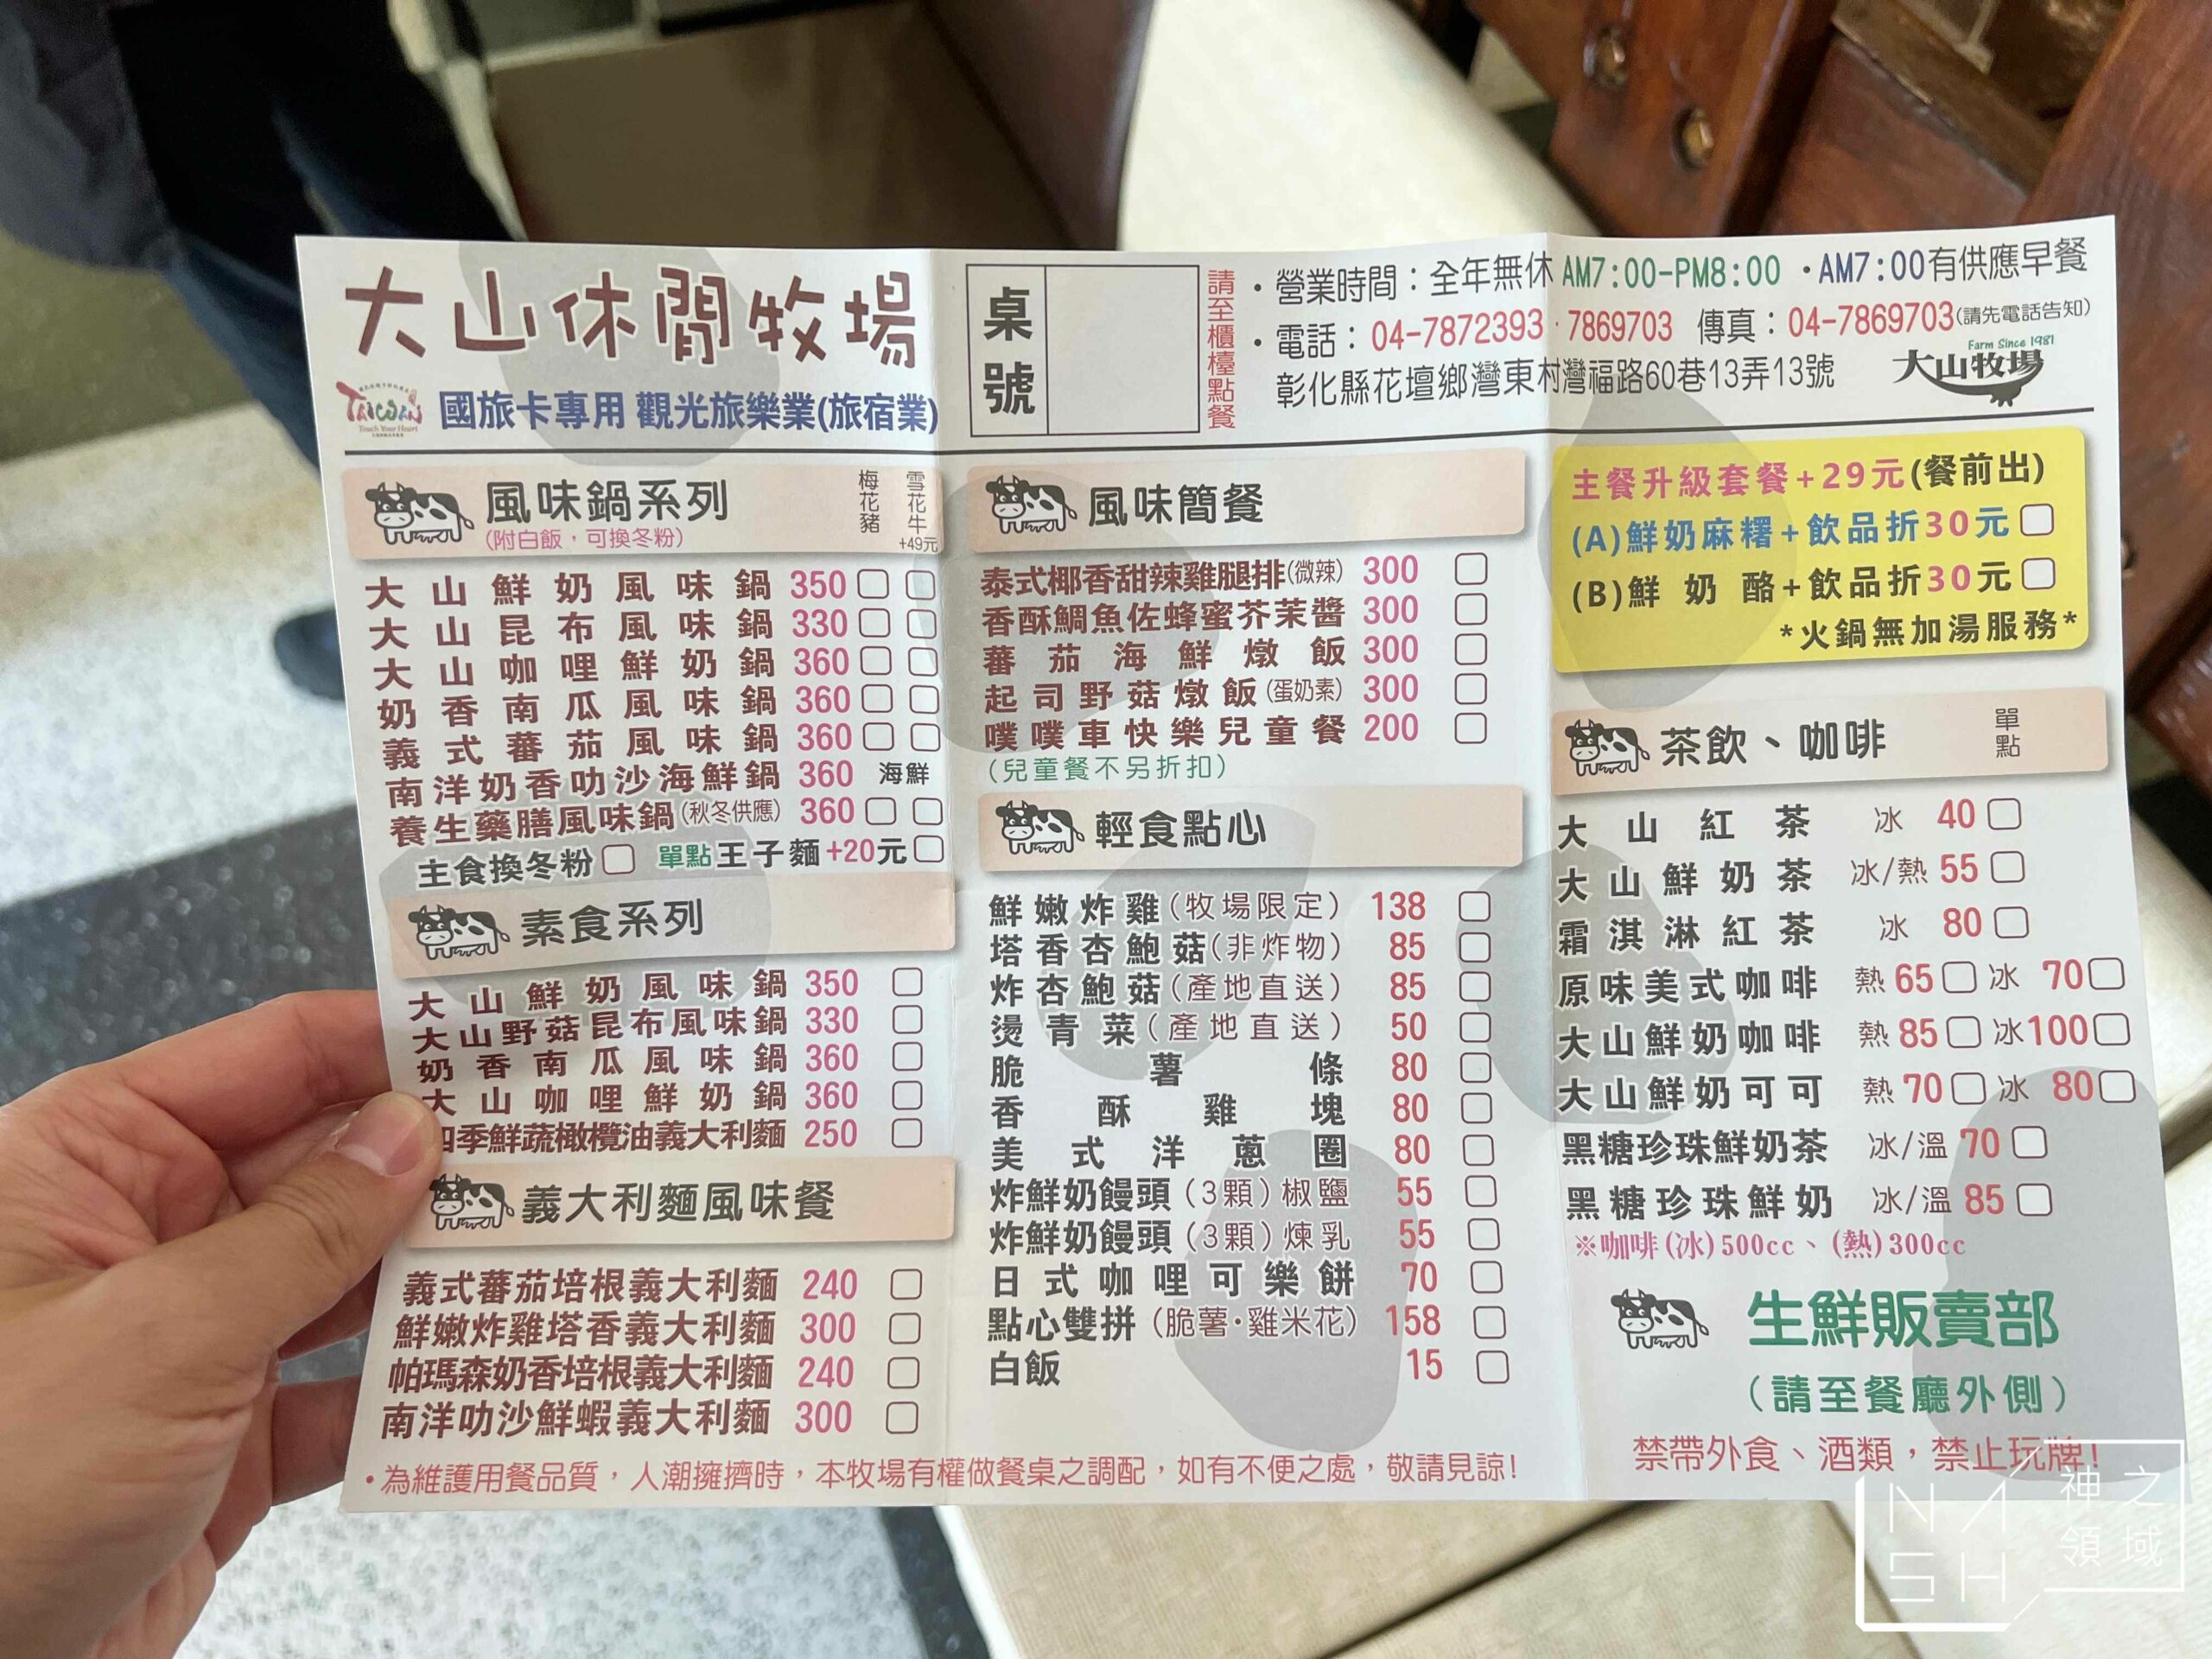 大山休閒牧場
TAIWAN
Touch Your Heart
國旅卡專用 觀光旅樂業(旅宿業)
桌號
請至櫃檯點餐
・營業時間：全年無休 AM7:00-PM8:00 ・AM7:00有供應早餐
・電話：04-7872393・7869703 傳真：04-7869703(請先電話告知)
彰化縣花壇鄉灣東村灣福路60巷13弄13號
Farm Since 1981
大山牧場
風味鍋系列
(附白飯，可換冬粉)
梅花豬
雪花牛
+49元
大山鮮奶風味鍋 350
大山昆布風味鍋 330
大山咖哩鮮奶鍋 360
奶香南瓜風味鍋 360
義式蕃茄風味鍋 360
南洋奶香叻沙海鮮鍋 360 海鮮
養生藥膳風味鍋(秋冬供應) 360
主食換冬粉 單點王子麵+20元
素食系列
大山鮮奶風味鍋 350
大山野菇昆布風味鍋 330
奶香南瓜風味鍋 360
大山咖哩鮮奶鍋 360
四季鮮蔬橄欖油義大利麵 250
義大利麵風味餐
義式蕃茄培根義大利麵 240
鮮嫩炸雞塔香義大利麵 300
帕瑪森奶香培根義大利麵 240
南洋叻沙鮮蝦義大利麵 300
風味簡餐
泰式椰香甜辣雞腿排(微辣) 300
香酥鯛魚佐蜂蜜芥茉醬 300
蕃茄海鮮燉飯 300
起司野菇燉飯(蛋奶素) 300
噗噗車快樂兒童餐 200
(兒童餐不另折扣)
輕食點心
鮮嫩炸雞(牧場限定) 138
塔香杏鮑菇(非炸物) 85
炸杏鮑菇(產地直送) 85
燙青菜(產地直送) 50
脆薯條 80
香酥雞塊 80
美式洋蔥圈 80
炸鮮奶饅頭(3顆)椒鹽 55
炸鮮奶饅頭(3顆)煉乳 55
日式咖哩可樂餅 70
點心雙拼(脆薯・雞米花) 158
白飯 15
主餐升級套餐+29元(餐前出)
(A)鮮奶麻糬+飲品折30元
(B)鮮奶酪+飲品折30元
*火鍋無加湯服務*
茶飲、咖啡
單點
大山紅茶 冰 40
大山鮮奶茶 冰/熱 55
霜淇淋紅茶 冰 80
原味美式咖啡 熱 65 冰 70
大山鮮奶咖啡 熱 85 冰 100
大山鮮奶可可 熱 70 冰 80
黑糖珍珠鮮奶茶 冰/溫 70
黑糖珍珠鮮奶 冰/溫 85
※咖啡(冰)500cc、(熱)300cc
生鮮販賣部
(請至餐廳外側)
禁帶外食、酒類，禁止玩牌!
・為維護用餐品質，人潮擁擠時，本牧場有權做餐桌之調配，如有不便之處，敬請見諒!
NASH
神之領域